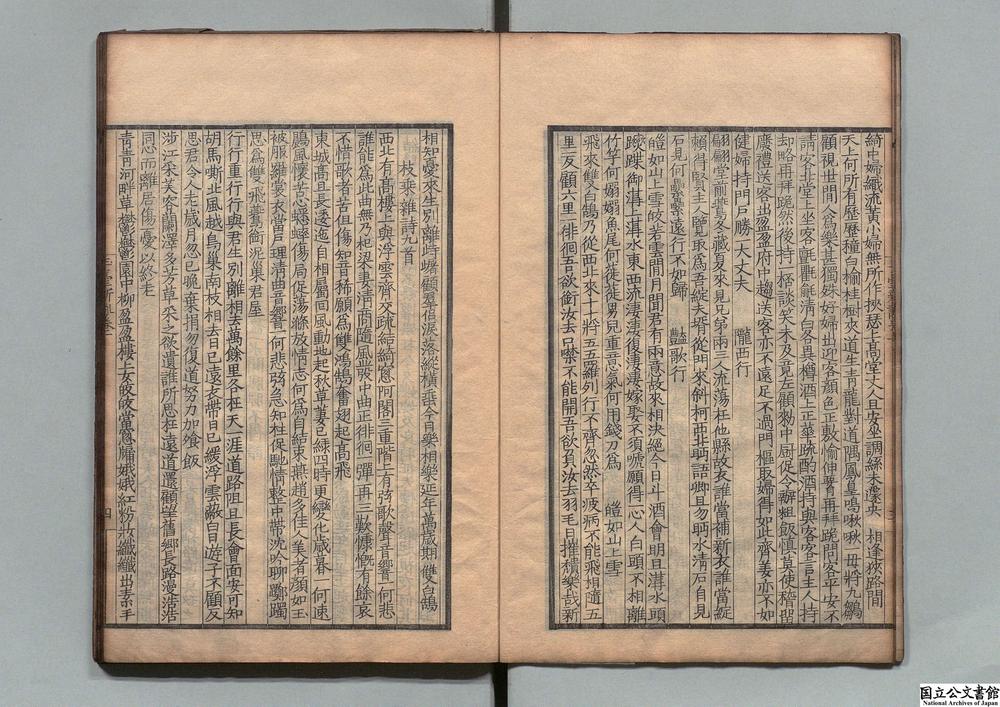 綺中婦織流黃小婦無所作挾瑟上高堂丈人且安坐調絲未遽央　相逢狹路間
天上何所有歷歷種白榆桂樹夾道生青龍對道隅鳳皇鳴啾啾一母將九鶵
顧視世間人為樂甚獨殊好婦出迎客顏色正敷愉伸署再拜跪問客平安不
請客北堂上坐客氈氍毹清白各異樽酒上正華疏酌酒持與客客言主人持
却略再拜跪然後持一桮談笑未及竟左顧敕中厨促令辦粗飯慎莫使稽留
廢禮送客出盈盈府中趨送客亦不遠足不過門樞取婦得如此齊姜亦不如
健婦持門戶勝一大丈夫　隴西行
翩翩堂前鷰冬藏夏來見兄弟兩三人流蕩在他縣故衣誰當補新衣誰當綻
賴得賢主人覽取為吾綻夫壻從門來斜柯西北眄語卿且勿眄水清石自見
石見何纍纍遠行不如歸　豔歌行
皚如山上雪皎若雲間月聞君有兩意故來相決絕今日斗酒會明旦溝水頭
蹀躞御溝上溝水東西流淒淒復淒淒嫁娶不須啼願得一心人白頭不相離
竹竿何嫋嫋魚尾何簁簁男兒重意氣何用錢刀為　皚如山上雪
飛來雙白鵠乃從西北來十十將五五羅列行不齊忽然卒疲病不能飛相隨五
里一反顧六里一徘徊吾欲銜汝去口噤不能開吾欲負汝去羽毛日摧頹樂哉新
相知憂來生別離躊躇顧羣侶淚落縱橫垂今日樂相樂延年萬歲期　雙白鵠
枚乘雜詩九首
西北有高樓上與浮雲齊交疏結綺窻阿閣三重階上有弦歌聲音響一何悲
誰能為此曲無乃杞梁妻清商隨風發中曲正徘徊一彈再三歎慷慨有餘哀
不惜歌者苦但傷知音稀願為雙鴻鵠奮翅起高飛
東城高且長逶迤自相屬回風動地起秋草萋已綠四時更變化歲暮一何速
鷐風懷苦心蟋蟀傷局促蕩滌放情志何為自結束燕趙多佳人美者顏如玉
被服羅裳衣當戶理清曲音響一何悲弦急知柱促馳情整中帶沈吟聊躑躅
思為雙飛鷰銜泥巢君屋
行行重行行與君生別離相去萬餘里各在天一涯道路阻且長會面安可知
胡馬嘶北風越鳥巢南枝相去日已遠衣帶日已緩浮雲蔽白日遊子不顧反
思君令人老歲月忽已晚棄捐勿復道努力加飱飯
涉江采芙容蘭澤多芳草采之欲遺誰所思在遠道還顧望舊鄉長路漫浩浩
同心而離居傷憂以終老
青青河畔草鬱鬱園中柳盈盈樓上女皎皎當窻牖娥娥紅粉妝纖纖出素手
国立公文書館
National Archives of Japan